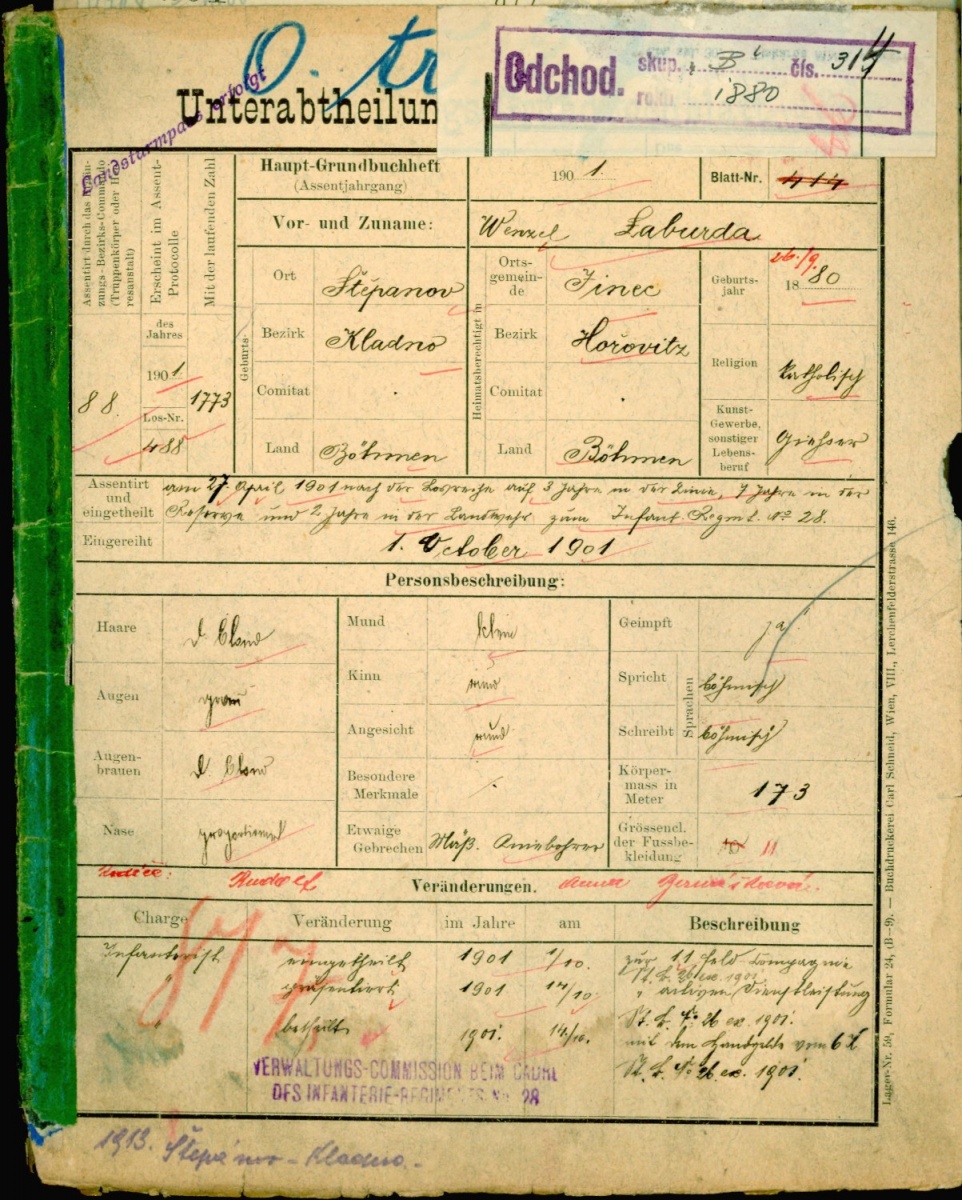 O. tr
Odchod. skup. B čís. 314
roční 1880
Landsturmpass erfolgt
Unterabtheilun
Haupt-Grundbuchheft
(Assentjahrgang)
1901.
Blatt-Nr. 414
Vor- und Zuname: Wenzel Laburda
Erscheint im Assent-
Protocolle
Mit der laufenden Zahl
des
Jahres
1901
Los-Nr.
88. 488 1773
Geburts-
Ort Štěpanov
Bezirk Kladno
Comitat .
Land Böhmen
Heimatsberechtigt in
Orts-
gemein-
de Jinec
Bezirk Hořovitz
Comitat .
Land Böhmen
Geburts-
jahr 26./9. 1880
Religion katholisch
Kunst-
Gewerbe,
sonstiger
Lebens-
beruf Giesser
Assentirt
und
eingetheilt
am 27. April 1901 nach der Losreihe auf 3 Jahre in der Linie, 7 Jahre in der
Reserve und 2 Jahre in der Landwehr zum Infant. Regmt. No 28.
Eingereiht 1. October 1901
Personsbeschreibung:
Haare d. blond
Augen grau
Augen-
brauen d. blond
Nase proportionirt
Mund klein
Kinn rund
Angesicht rund
Besondere
Merkmale
Etwaige
Gebrechen Mäß. Kniebohrer
Geimpft ja
Sprachen
Spricht böhmisch
Schreibt böhmisch
Körper-
mass in
Meter 173
Grössencl.
der Fussbe-
kleidung 10 11
Rodiče: Rudolf Veränderungen. Anna
Charge Veränderung im Jahre am Beschreibung
Infanterist eingetheilt 1901 1/10. zur 11. Feld Compagnie
St. B. No 26 ex 1901
präsentiert 1901 14/10 " activen Dienstleistung
St. B. No 26 ex. 1901.
betheilt 1901. 14/10. mit dem Handgelde vom 6 K
St. B. No 26 ex. 1901
VERWALTUNGS-COMMISSION BEIM CADRE
DES INFANTERIE-REGIMENTS Nr. 28
1913. Štěpánov - Kladno. -
Lager-Nr. 59, Formular 24, (B—9). — Buchdruckerei Carl Schneid, Wien, VIII., Lerchenfelderstrasse 146.